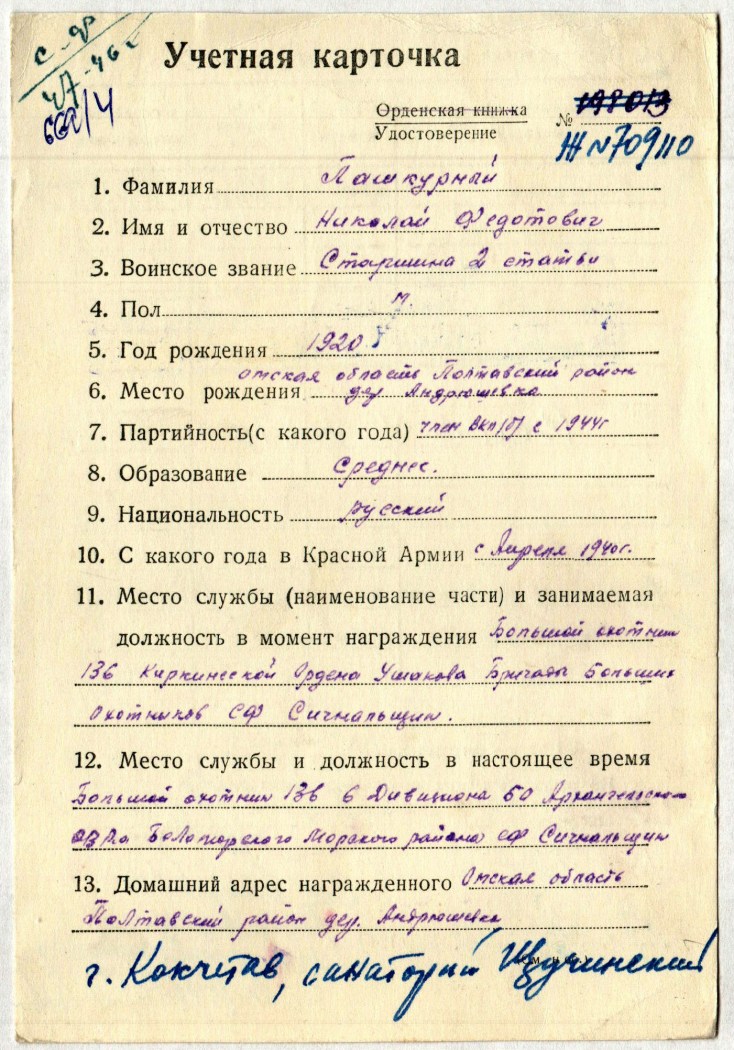 с. ф
47-46г
660/4
Учетная карточка
Орденская книжка
Удостоверение
№ 198013
Ж № 709110
1. Фамилия Пашкурный
2. Имя и отчество Николай Федотович
3. Воинское звание Старшина 2 статьи
4. Пол м.
5. Год рождения 1920
Омская область Полтавский район
6. Место рождения дер Андрюшевка
7. Партийность(с какого года) член ВКП(б) с 1944г
8. Образование Среднее.
9. Национальность русский
10. С какого года в Красной Армии с Апреля 1940г.
11. Место службы (наименование части) и занимаемая
должность в момент награждения Большой охотник
136 Киркинеской Ордена Ушакова Бригады Больших
Охотныков СФ Сигнальщик.
12. Место службы и должность в настоящее время
Большой охотник 136 6 Дивизиона БО Архангельского
ОВРа Беломорского Морского района СФ Сигнальщик
13. Домашний адрес награжденного Омская область
Полтавский район дер. Андрюшевка
г. Кокчетав, санаторий Щучинский